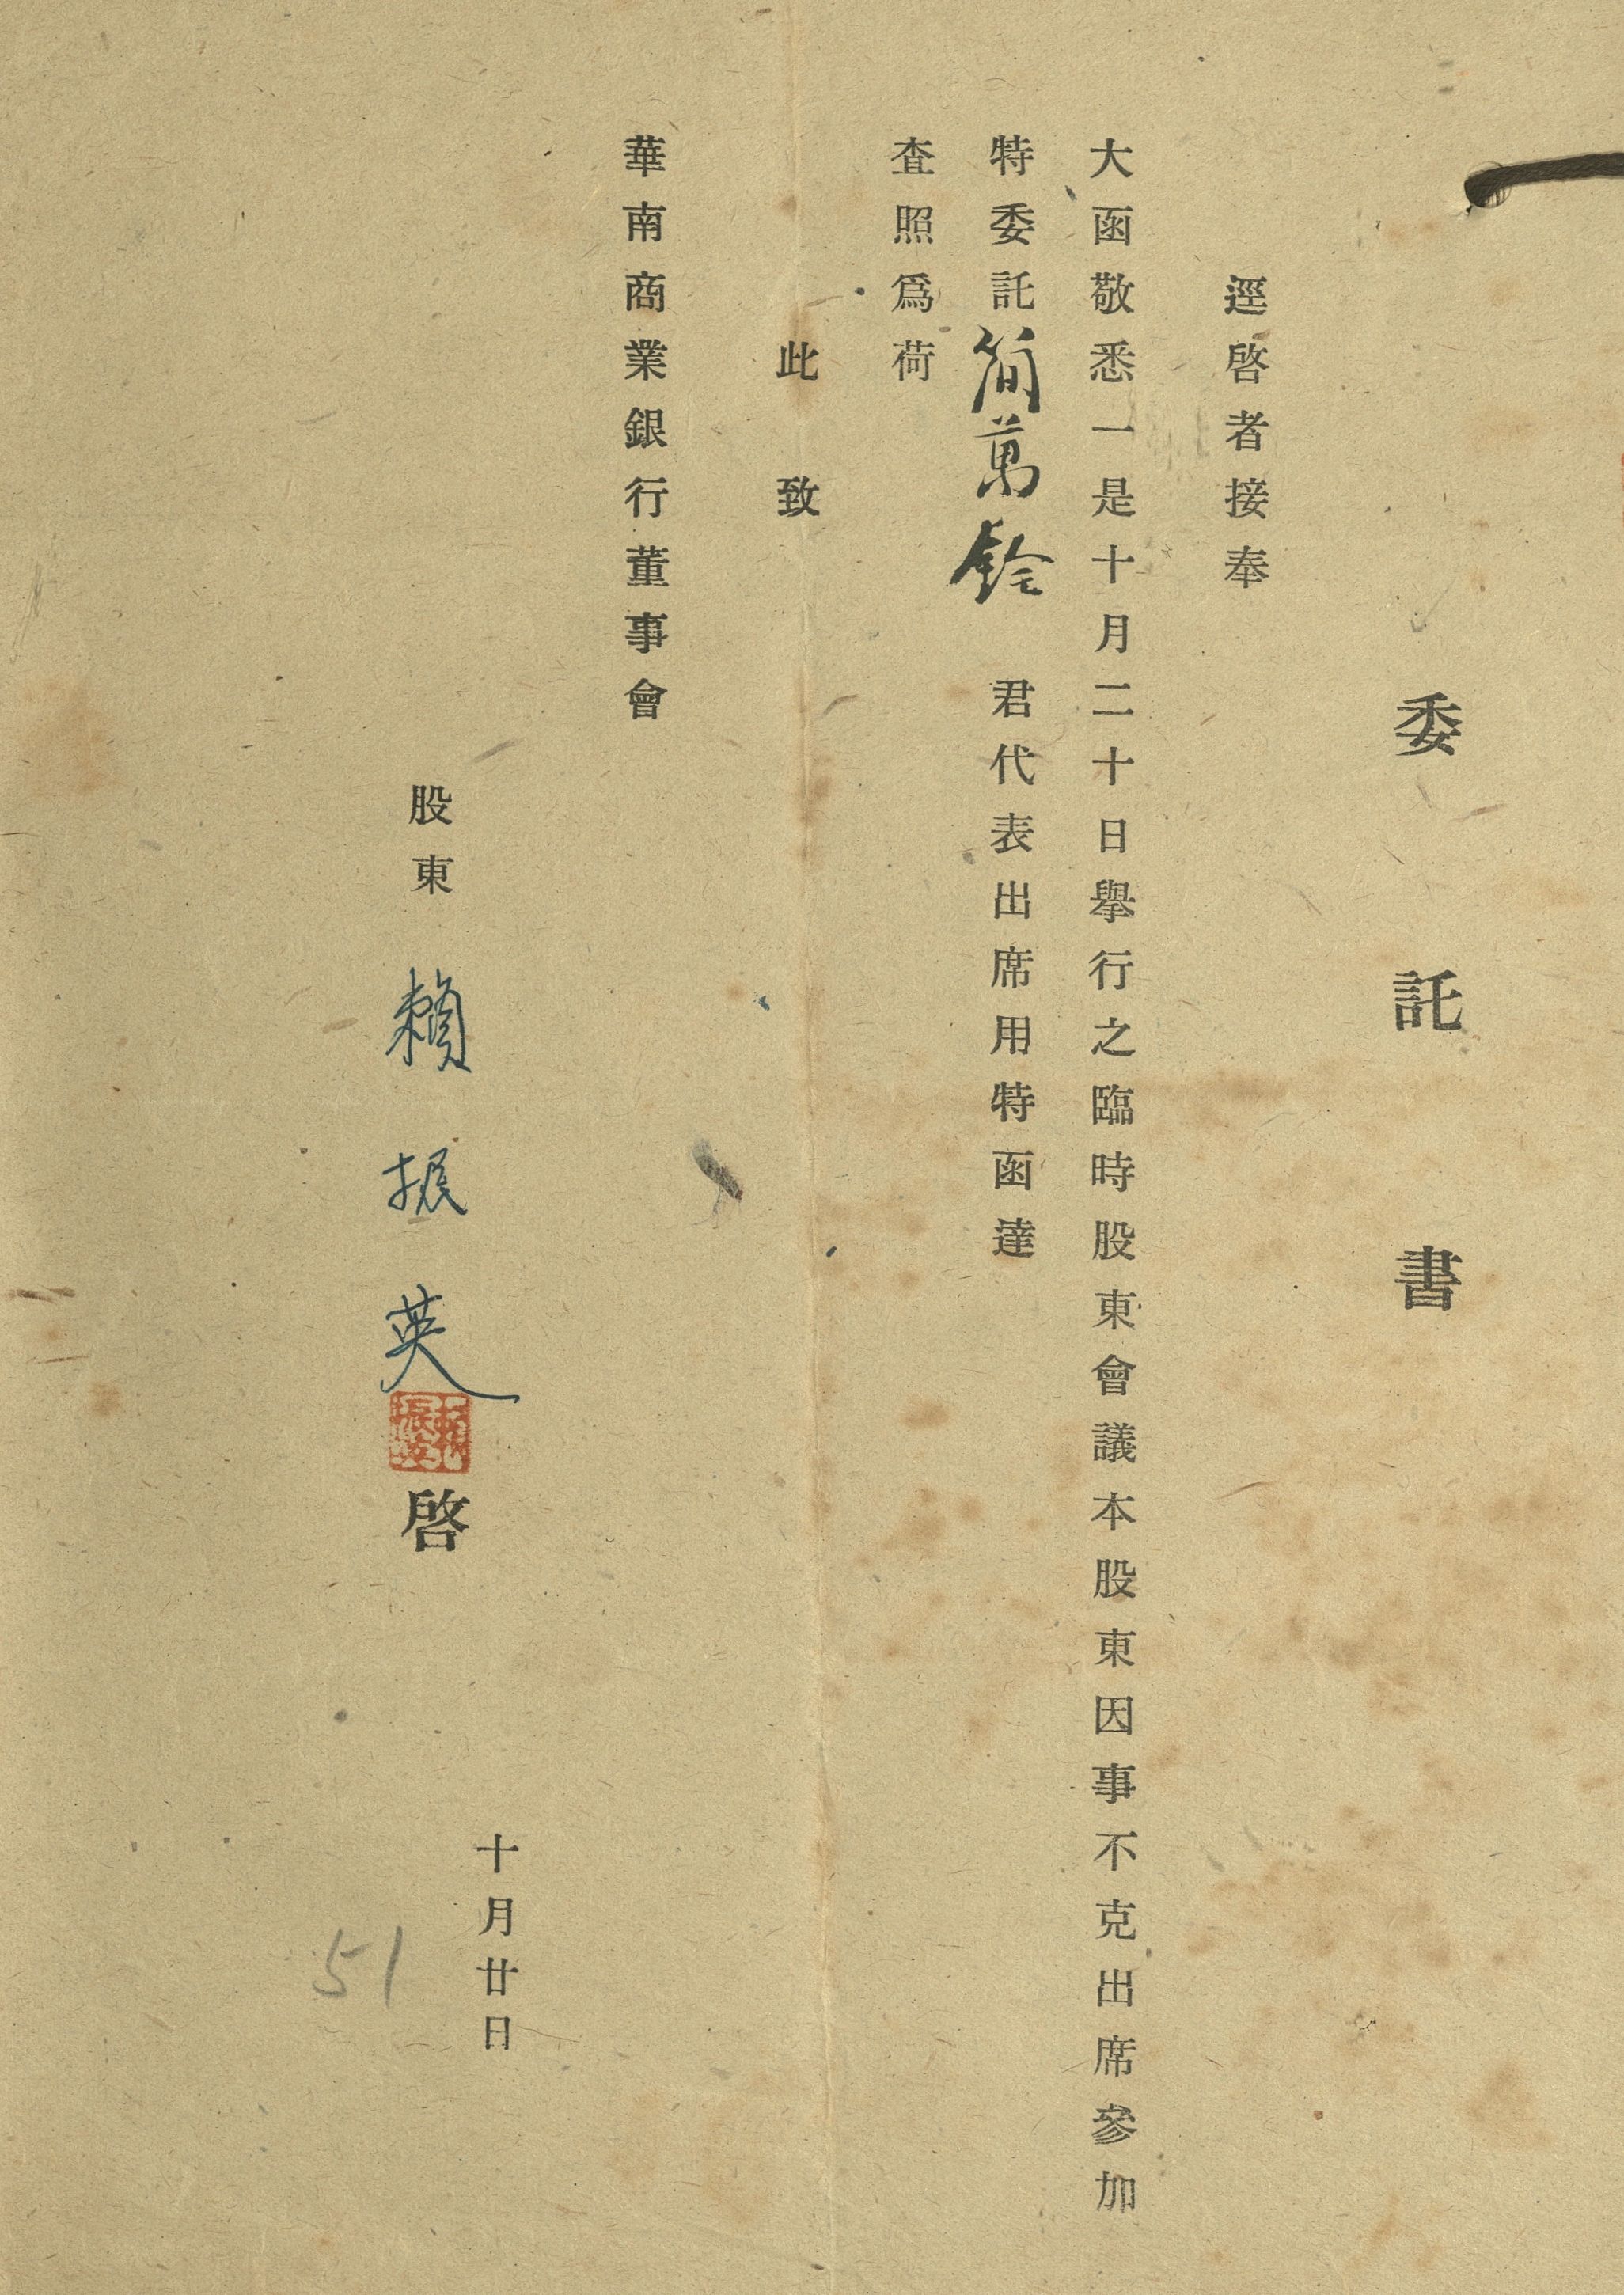 委託書
逕啓者接奉
大函敬悉一是十月二十日舉行之臨時股東會議本股東因事不克出席參加
特委託簡萬銓 君代表出席用特函達
查照爲荷
此致
華南商業銀行董事會
股東 賴振英 啓
賴振英
十月廿日
51